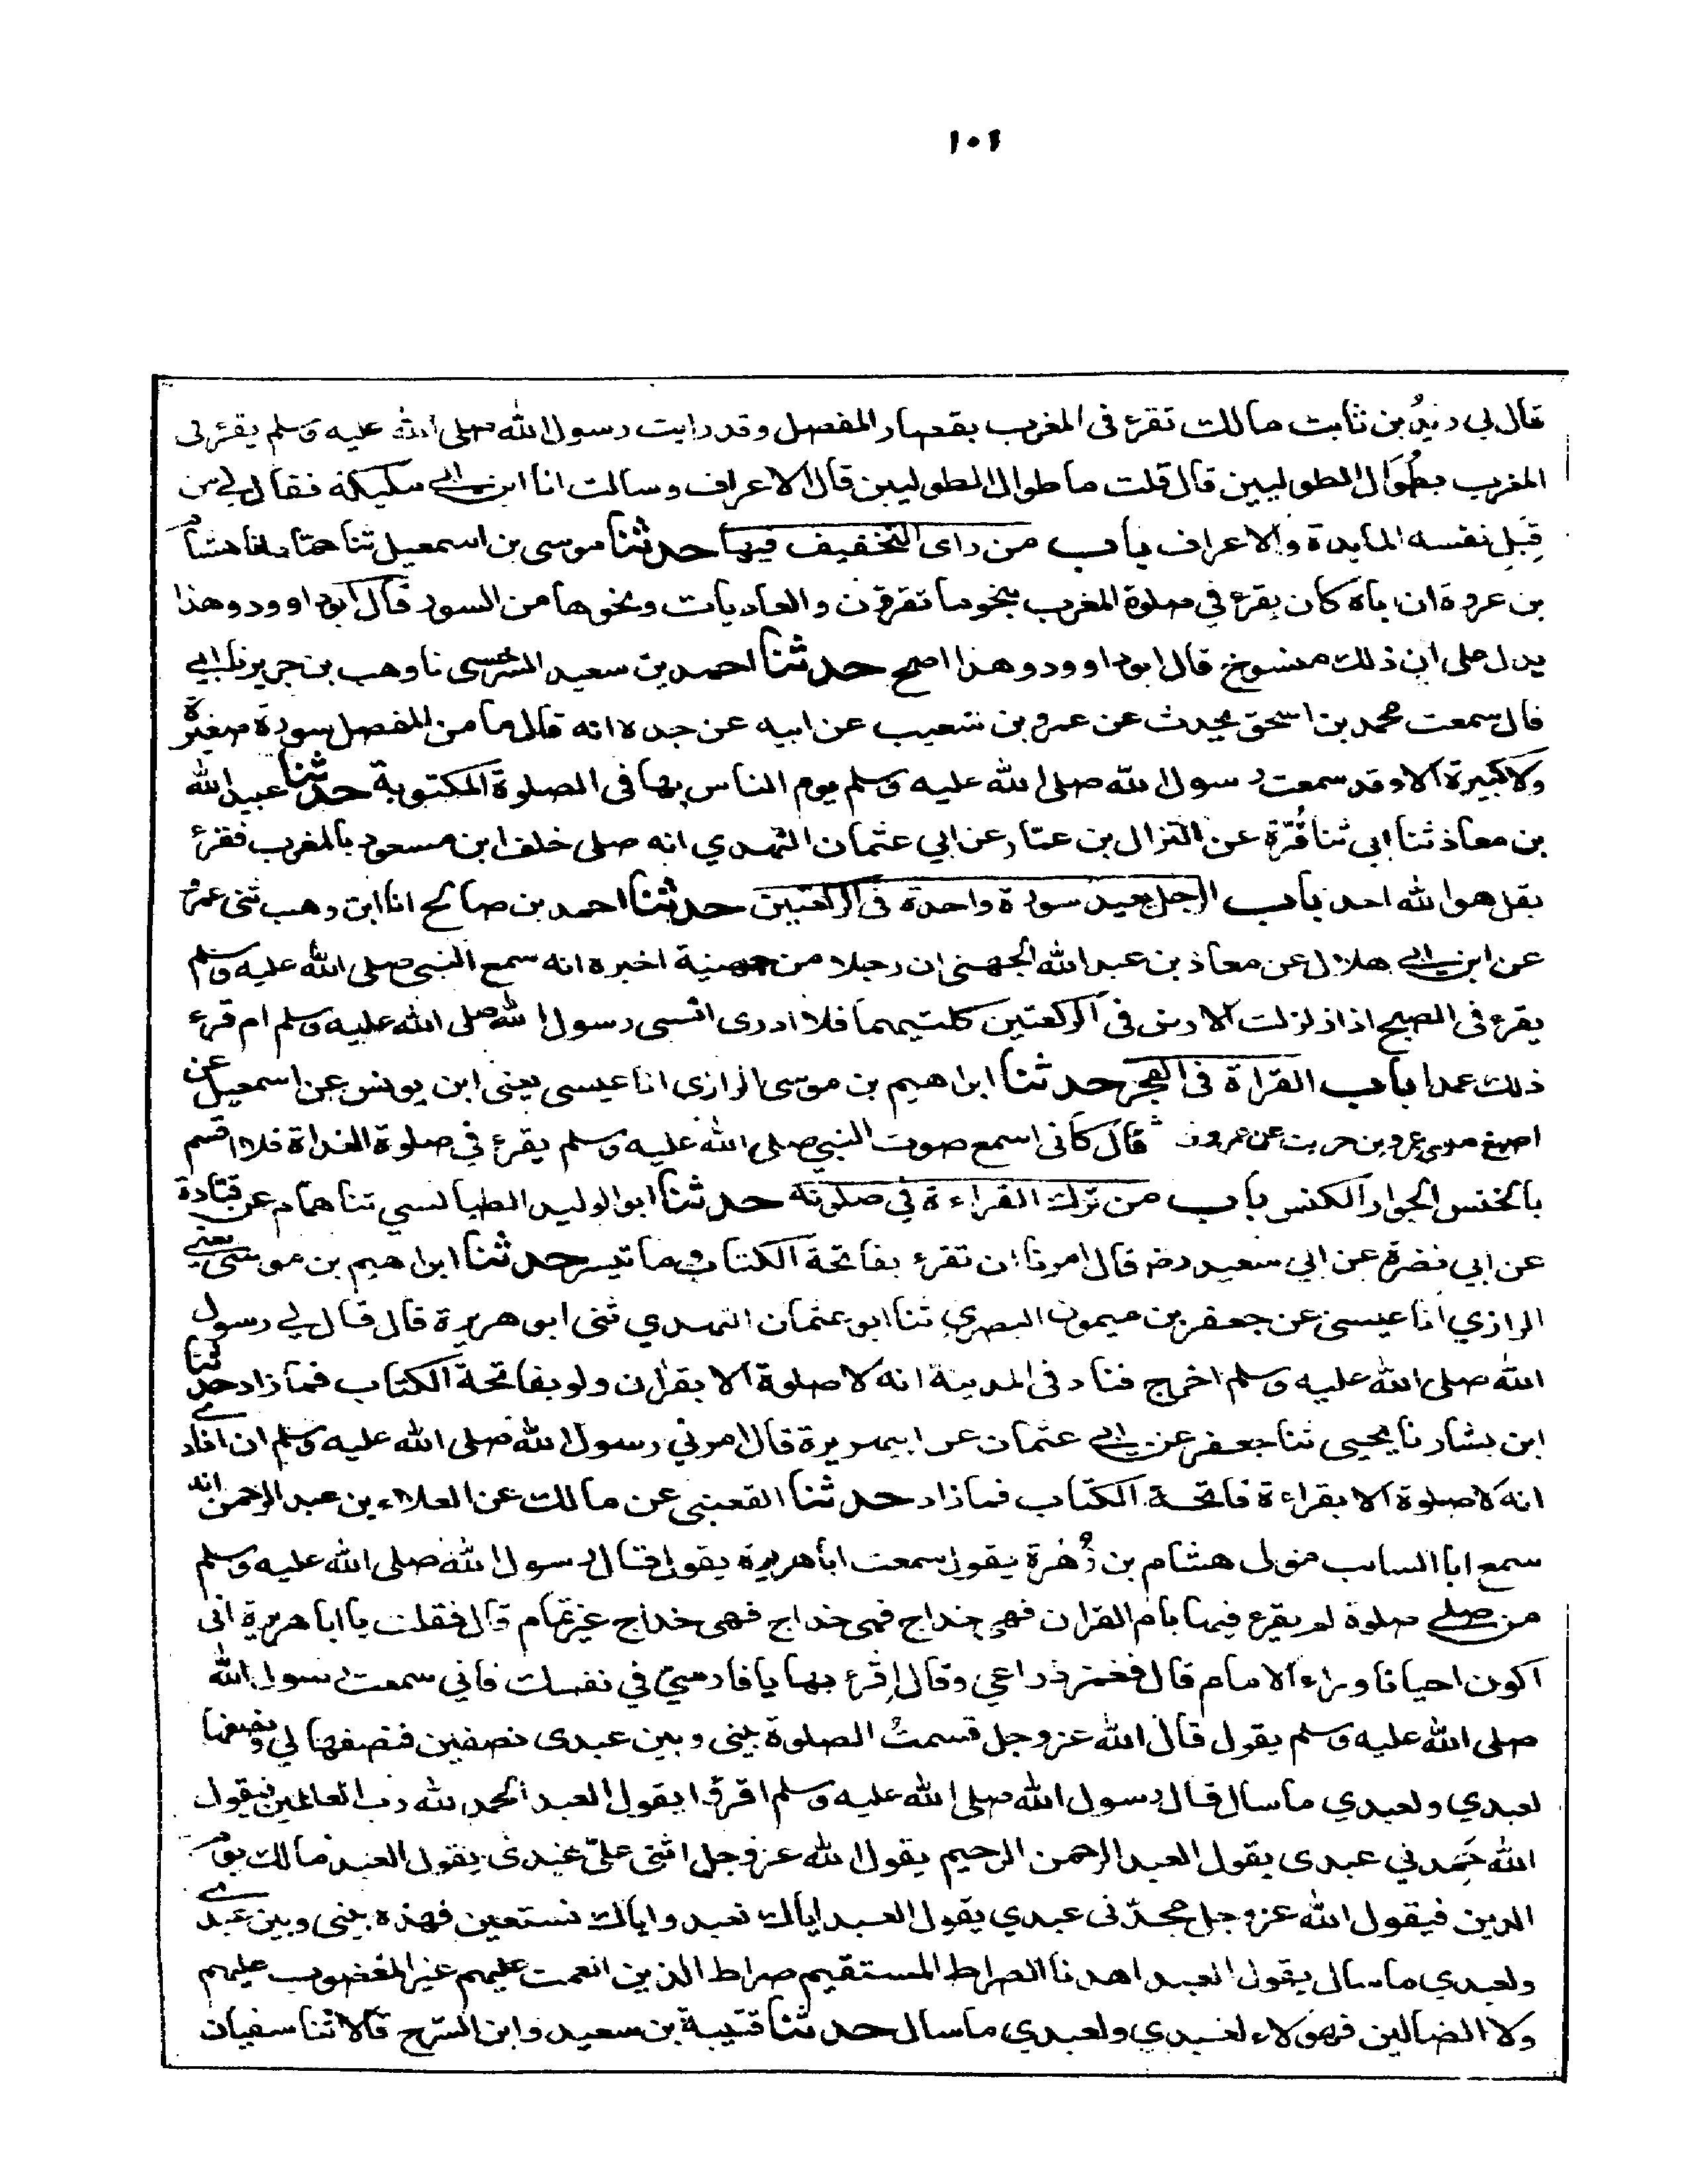 ١٠١
قال لي زيدُ بن ثابت مالك تقرء فى المغرب بقصار المفصل وقد رايت رسول الله صلى الله عليه وسلم يقرء فى
المغرب بطُوَال الطوليين قال قلت ما طوال الطوليين قال الاعراف وسالت انا ابن ابي مليكة فقال لي من
قِبَلِ نفسه المايدة والاعراف باب من راى التخفيف فيها حدثنا موسى بن اسمعيل ثنا حماد انا هشام
بن عروة ان اباه كان يقرء في صلوة المغرب بنحو ما تقرؤن والعاديات ونحوها من السور قال ابو داوود وهذا
يدل على ان ذلك منسوخ قال ابو داوود وهذا اصح حدثنا احمد بن سعيد السرخسى نا وهب بن جرير نا ابي
قال سمعت محمد بن اسحق يحدث عن عمرو بن شعيب عن ابيه عن جده انه قال ما من المفصل سورة صغيرة
ولا كبيرة الا وقد سمعت رسول الله صلى الله عليه وسلم يوم الناس بها فى الصلوة المكتوبة حدثنا عبيد الله
بن معاذ ثنا ابى ثنا قُرّة عن النزال بن عمار عن ابي عثمان النهدي انه صلى خلف ابن مسعود بالمغرب فقرء
بقل هو الله احد باب الرجل يعيد سورة واحدة فى الركعتين حدثنا احمد بن صالح انا ابن وهب ثنى عمرو
عن ابن ابي هلال عن معاذ بن عبد الله الجهنى ان رجلا من جهينة اخبره انه سمع النبي صلى الله عليه وسلم
يقرء فى الصبح اذا زلزلت الارض فى الركعتين كلتيهما فلا ادرى انسى رسول الله صلى الله عليه وسلم ام قرء
ذلك عمدا باب القراة فى الفجر حدثنا ابراهيم بن موسى الرازى انا عيسى يعنى ابن يونس عن اسمعيل عن
اصبغ مولى عمرو بن حريث عن عمرو قال كانى اسمع صوت النبي صلى الله عليه وسلم يقرء في صلوة الغداة فلا اقسم
بالخنس الجوار الكنس باب من ترك القراءة في صلوته حدثنا ابو الوليد الطيالسي ثنا همام عن قتادة
عن ابي نضرة عن ابي سعيد رضـ قال امرنا ان تقرء بفاتحة الكتاب وما تيسر حدثنا ابراهيم بن موسى يعنى
الرازي انا عيسى عن جعفر بن ميمون البصري ثنا ابو عثمان النهدي ثنى ابو هريرة قال قال لي رسول
الله صلى الله عليه وسلم اخرج فناد فى المدينة انه لا صلوة الا بقران ولو بفاتحة الكتاب فما زاد حدثنا
ابن بشار نا يحيى ثنا جعفر عن ابي عثمان عن ابي هريرة قال امرني رسول الله صلى الله عليه وسلم ان انادى
انه لا صلوة الا بقراءة فاتحة الكتاب فما زاد حدثنا القعنبى عن مالك عن العلاء بن عبد الرحمن انه
سمع ابا السايب مولى هشام بن زُهْرة يقول سمعت ابا هريرة يقول قال رسول الله صلى الله عليه وسلم
من صلى صلوة لم يقرء فيها بام القران فهى خداج فهى خداج فهى خداج غير تمام قال فقلت يا ابا هريرة انى
اكون احيانا وراء الامام قال فغمز ذراعي وقال اقرء بها يا فارسيّ في نفسك فاني سمعت رسول الله
صلى الله عليه وسلم يقول قال الله عز وجل قسمتُ الصلوة بينى وبين عبدى نصفين فنصفها لي ونصفها
لعبدي ولعبدي ما سال قال رسول الله صلى الله عليه وسلم اقرؤا يقول العبد الحمد لله رب العالمين فيقول
الله حَمِدني عبدى يقول العبد الرحمن الرحيم يقول الله عز وجل اثنى علىّ عبدى يقول العبد مالك يوم
الدين فيقول الله عز وجل مجدنى عبدي يقول العبد اياك نعبد واياك نستعين فهذه بينى وبين عبدى
ولعبدي ما سال يقول العبد اهدنا الصراط المستقيم صراط الذين انعمت عليهم غير المغضوب عليهم
ولا الضالين فهؤلاء لعبدي ولعبدي ما سال حدثنا قتيبة بن سعيد وابن السرح قالا ثنا سفيان